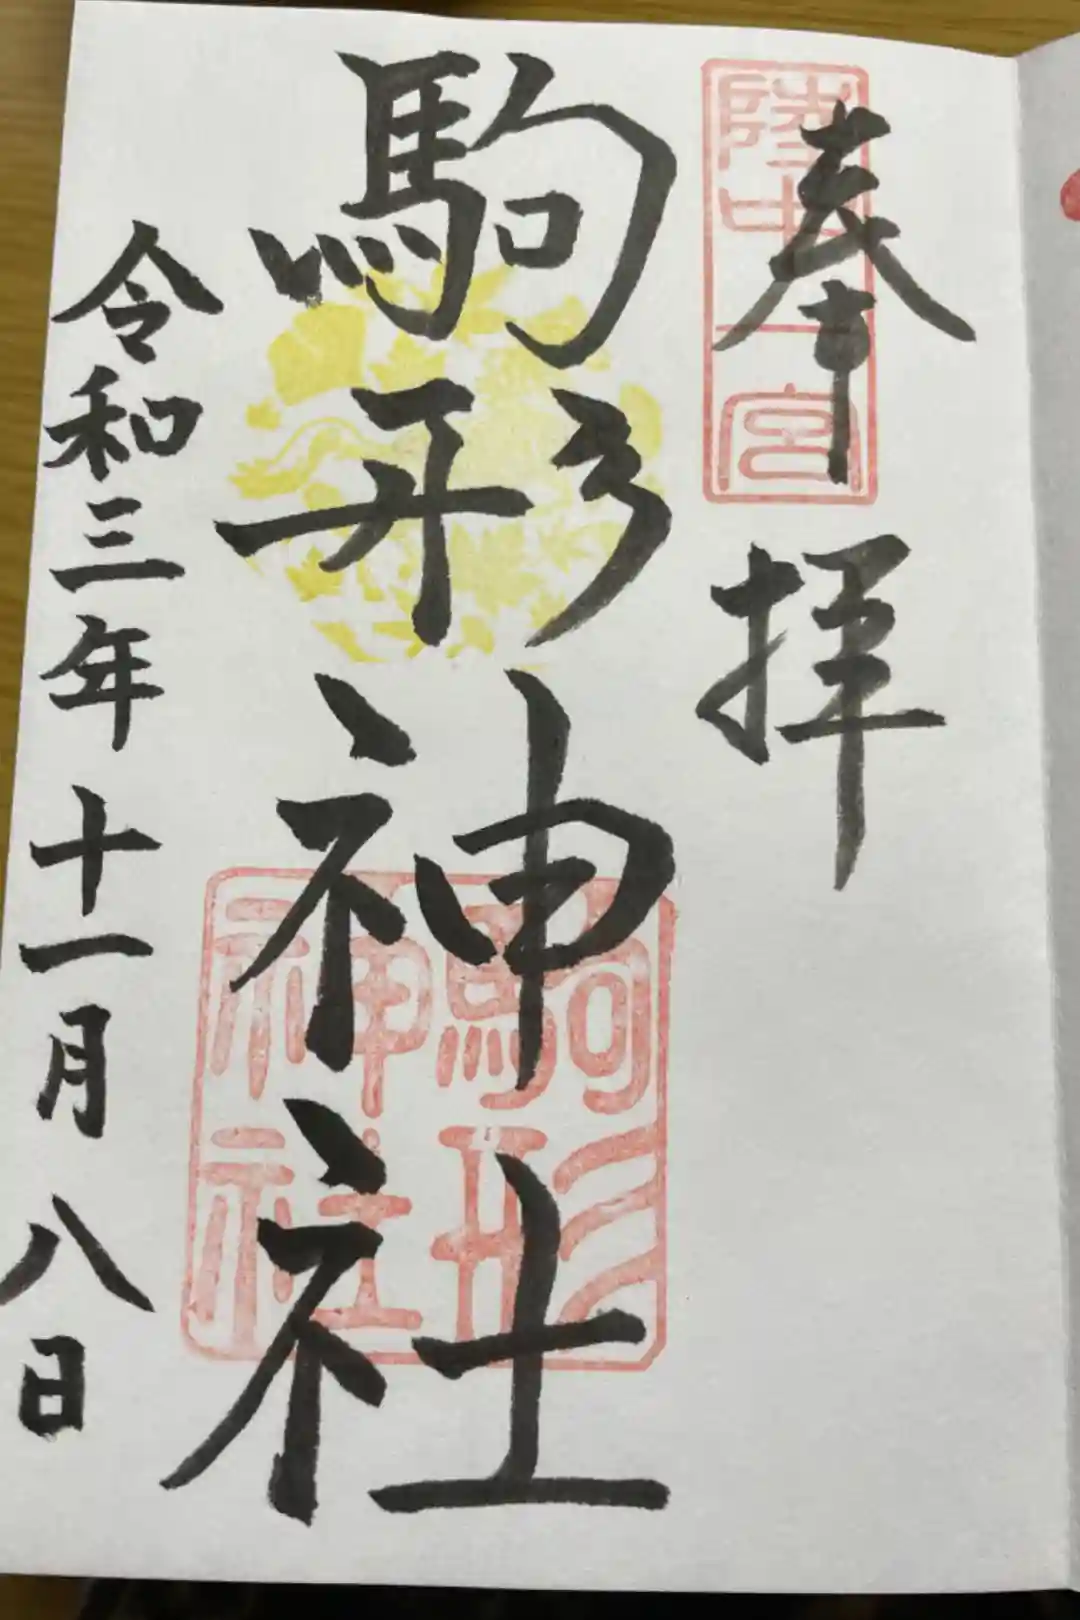 奉拝
陸中一宮
駒形神社
駒形神社
令和三年十一月八日